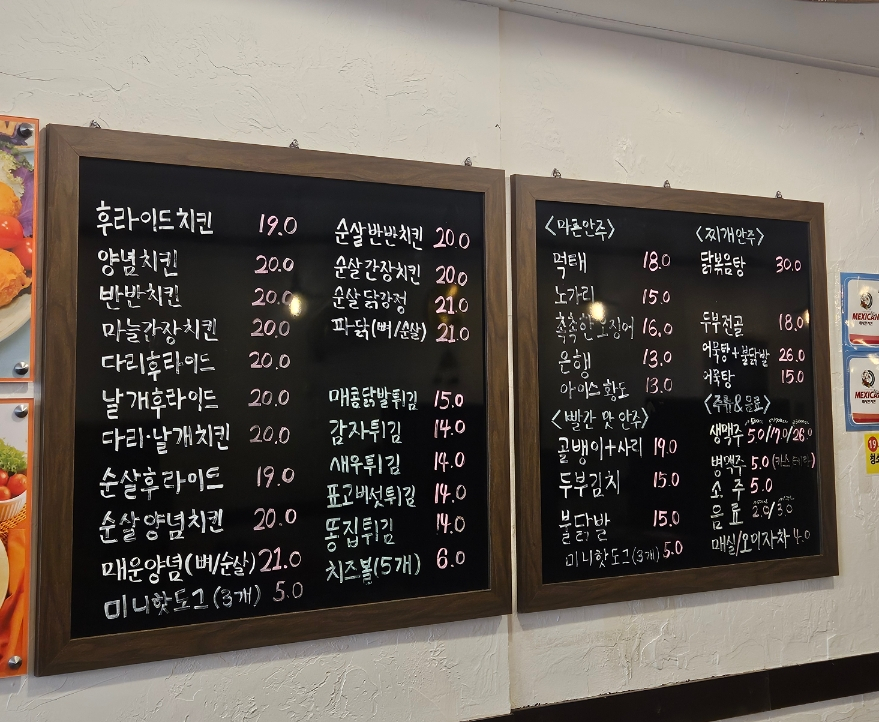 후라이드치킨 19.0
양념치킨 20.0
반반치킨 20.0
마늘간장치킨 20.0
다리후라이드 20.0
날개후라이드 20.0
다리·날개치킨 20.0
순살후라이드 19.0
순살양념치킨 20.0
매운양념(뼈/순살) 21.0
미니핫도그(3개) 5.0
순살반반치킨 20.0
순살간장치킨 20.0
순살닭강정 21.0
파닭(뼈/순살) 21.0
매콤닭발튀김 15.0
감자튀김 14.0
새우튀김 14.0
표고버섯튀김 14.0
똥집튀김 14.0
치즈볼(5개) 6.0
<마른안주>
먹태 18.0
노가리 15.0
촉촉한오징어 16.0
은행 13.0
아이스황도 13.0
<빨간 맛 안주>
골뱅이+사리 19.0
두부김치 15.0
불닭발 15.0
미니핫도그(3개) 5.0
<찌개안주>
닭볶음탕 30.0
두부전골 18.0
어묵탕+불닭발 26.0
어묵탕 15.0
<주류&음료>
생맥주 5.0/7.0/26.0
병맥주 5.0
소주 5.0
음료 2.0/3.0
매실/오미자차 4.0
MEXICAN
MEXICAN
19